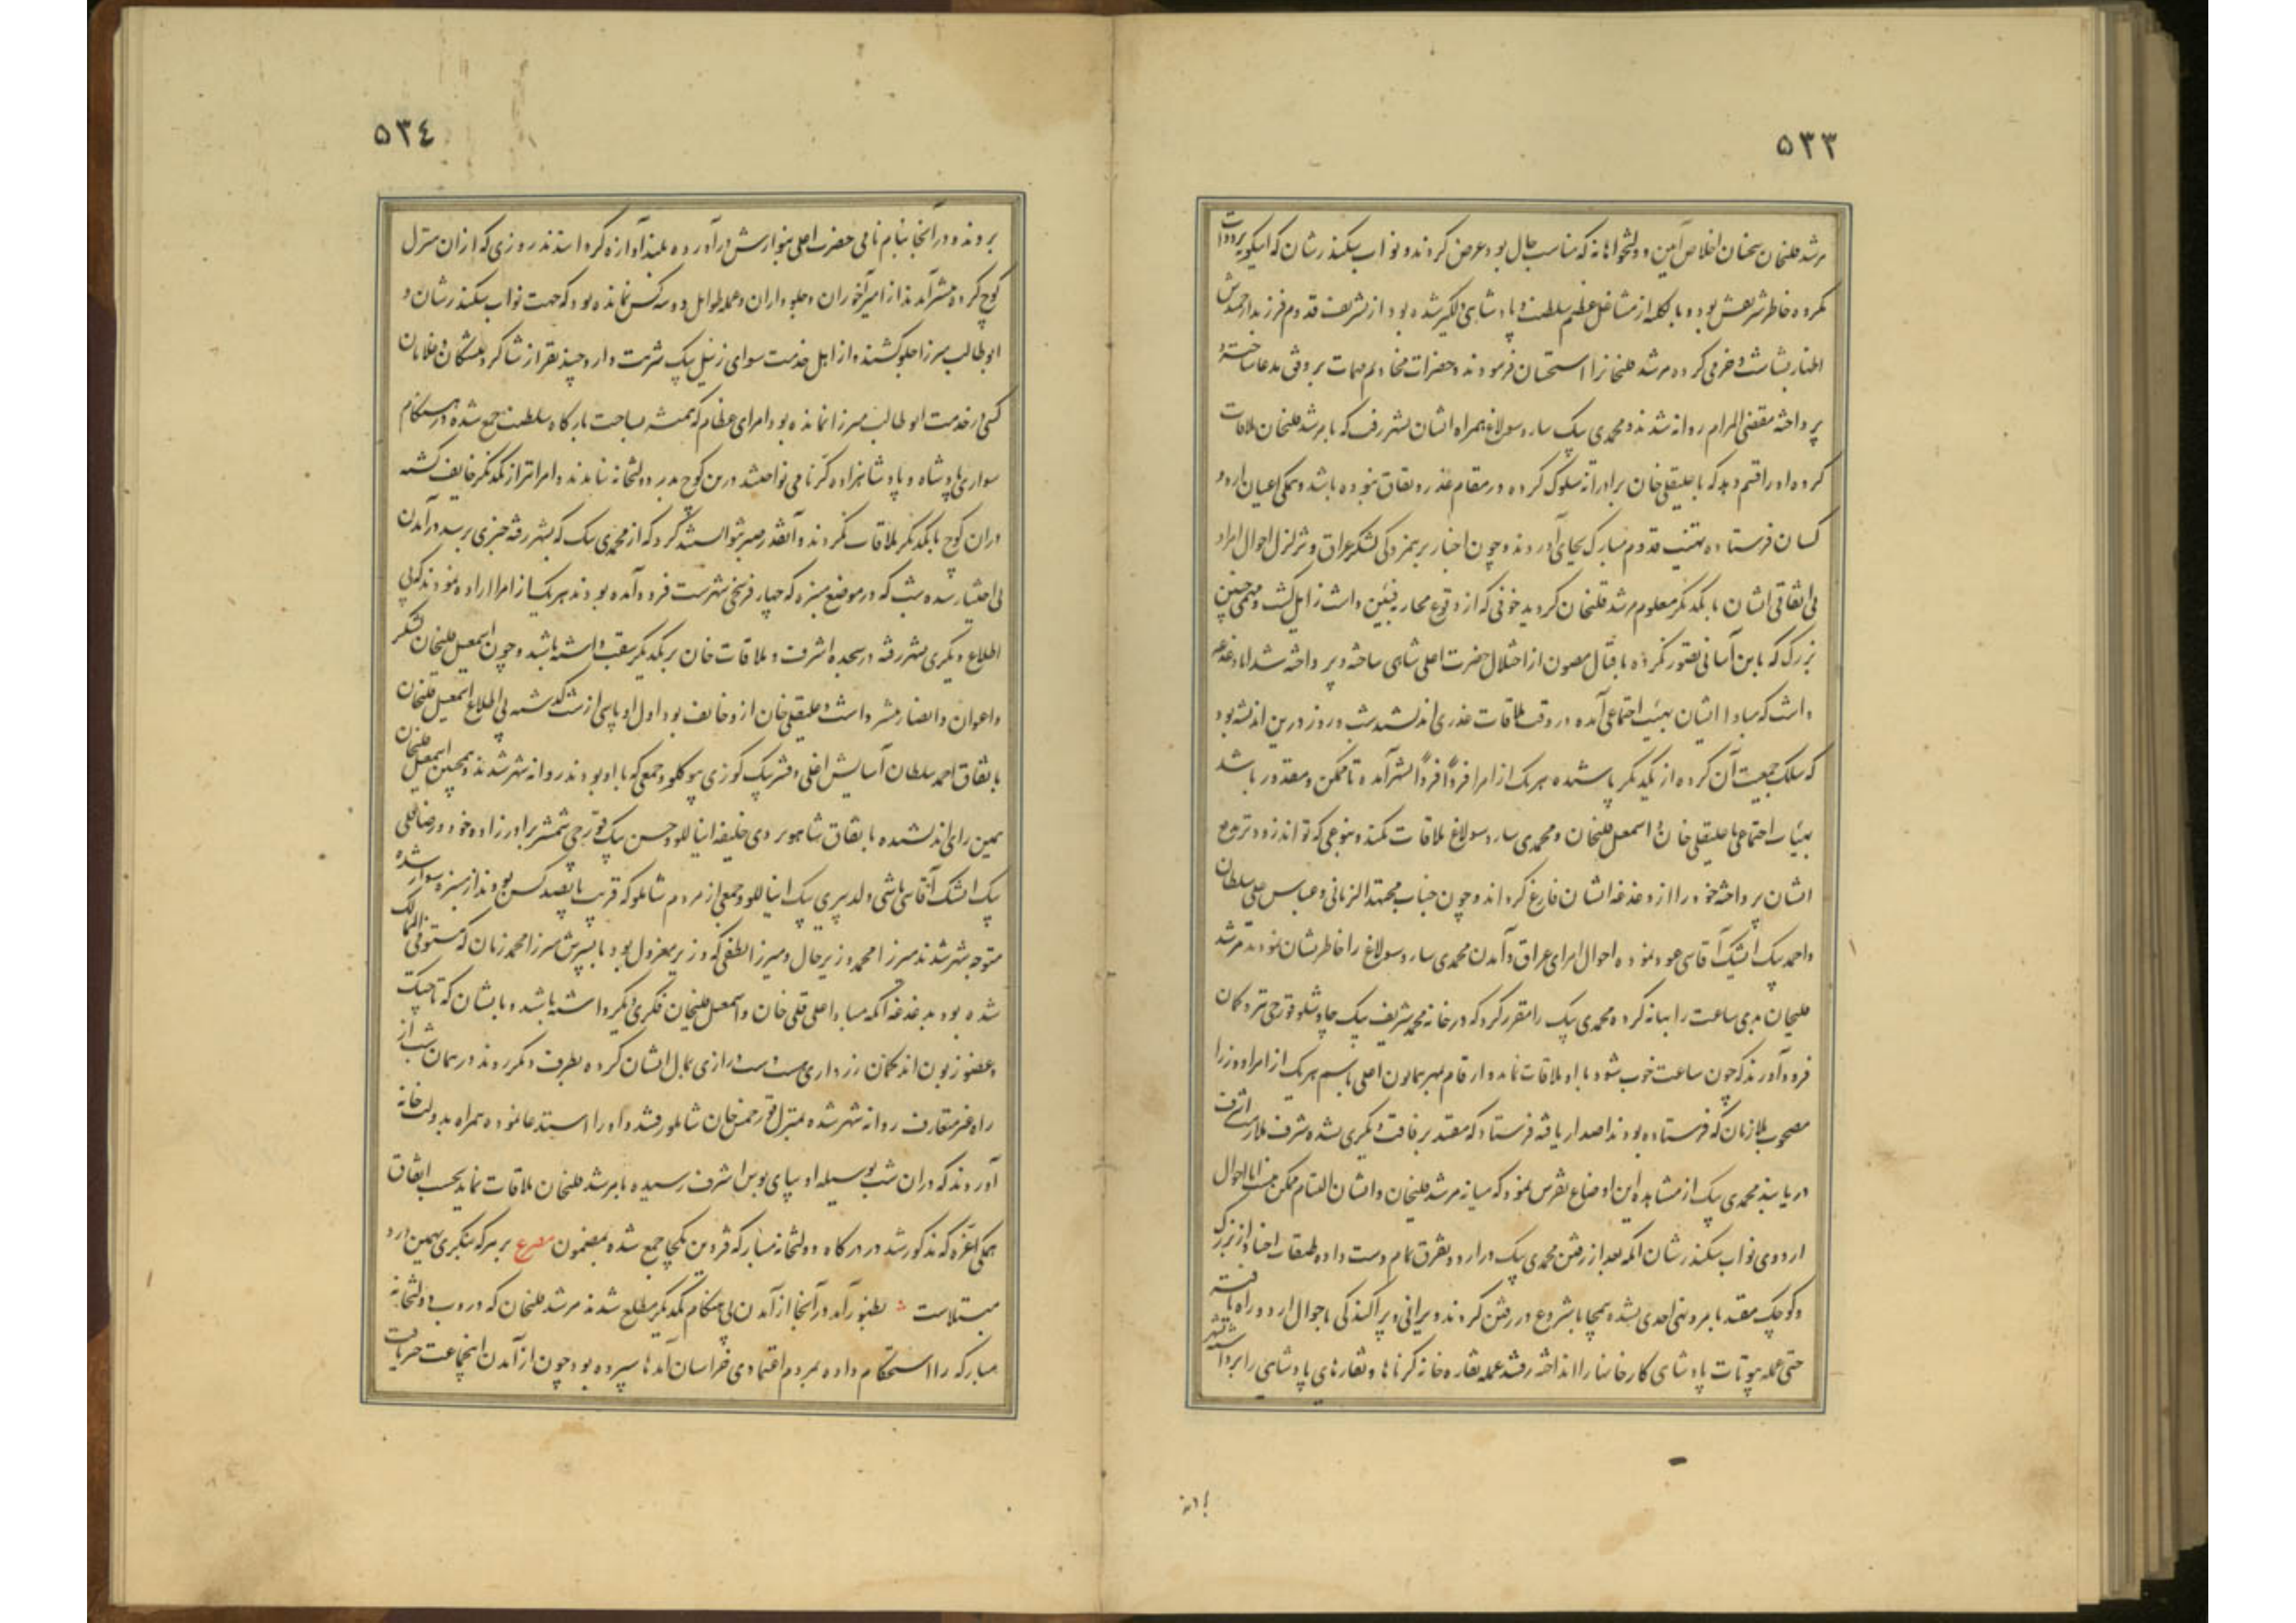 ۵۳۳
مرشد قلیخان سخنان اخلاص آمین و دولتخواهانه که مناسب حال بود عرض کردند و نواب سکندرشان که
مکروه خاطر شریفش بود و بالکلیه از مشاغل عظیم سلطنت و پادشاهی دلگیر شده بود از تشریف قدوم فرزند ارجمندش
اظهار بشاشت و خرمی کرده مرشد قلیخانرا استحسان فرمودند و حضرات مخادیم مهمات بر وفق مدعا ساخته و
پرداخته مقضی المرام روانه شدند و محمدی بیک سارو سولاغ همراه ایشان بشهر رفت که با مرشد قلیخان ملاقات
کرده او را قسم دهد که با علیقلی خان برادرانه سلوک کرده در مقام غدر و نفاق نبوده باشد و همکی اعیان اردو
کسان فرستاده تهنیت قدوم مبارک بجای آوردند و چون اخبار برهمزدکی لشکر عراق و تزلزل احوال امراء
بی اتفاقی ایشان با یکدیکر معلوم مرشد قلیخان کردید خوفی که از وقوع محاربه فئتین داشت زایل کشت و مهمی چنین
بزرک که باین آسانی تصور نکرده باقبال مصون از اختلال حضرت اعلی شاهی ساخته و پرداخته شد اما دغدغه
داشت که مبادا ایشان بهیئت اجتماعی آمده در وقت ملاقات غدری اندیشند شب و روز درین اندیشه بود
که سلک جمعیت آن کروه از یکدیکر پاشیده هر یک از امرا فرداً فرداً بشهر آمده تا ممکن و مقدور باشد
بهیئات اجتماعی با علیقلی خان و اسمعیل قلیخان و محمدی سارو سولاغ ملاقات نکند و بنوعی که تواند زودتر بدفع
ایشان پرداخته خود را از دغدغه ایشان فارغ کرداند و چون جناب مجتهد الزمانی و عباس علی سلطان
و احمد بیک ایشیک آقاسی عود نموده احوال امرای عراق و آمدن محمدی سارو سولاغ را خاطر نشان نمودند مرشد
قلیخان بدی ساعت را بهانه کرده محمدی بیک را مقرر کرد که در خانه محمد شریف بیک چاوشلو قورچی تیر و کمان
فرود آورند که چون ساعت خوب شود با او ملاقات نماید و ارقام بمهر همایون اعلی باسم هر یک از امرا و وزرا
مصحوب ملازمان که فرستاده بودند اصدار یافته فرستاد که مقید برفاقت دیکری نشده شرف ملازمت اشرف
دریابند محمدی بیک از مشاهده این اوضاع تفرس نمود که میانه مرشد قلیخان و ایشان التیام ممکن نیست اما احوال
اردوی نواب سکندرشان آنکه بعد از رفتن محمدی بیک در اردو تفرق تمام دست داده طبقات اجناد از بزرک
و کوچک مقید بامر و نهی احدی نشده بی محابا شروع در رفتن کردند و ویرانی و پراکندکی باحوال اردو راه یافته
حتی عمله بیوتات پادشاهی کارخانها را انداخته رفتند عمله نقاره خانه کرناها و نقارهای پادشاهی را برداشته بشهر
۵۳٤
بروند و در آنجا بنام نامی حضرت اعلی بنوازش درآورده بلند آوازه کردانیدند روزی که از ان منزل
کوچ کرده میشد از امیرآخوران و جلوداران و عمله طوایل دو سه کس نمانده بود که جهت نواب سکندرشان و
ابوطالب میرزا جلو کشند و از اهل خدمت سوای زنبیل بیک شربت دار و چند نفر از شاکرد پیشکان و غلامان
کسی در خدمت ابوطالب میرزا نمانده بود و امرای عظام که همیشه صباحت بارکاه سلطنت جمع شده در هنکام
سواری پادشاه و پادشاهزاده کرنا می نواختند درین کوچ بدر دولتخانه نیامدند و امرا نیز از یکدیکر خایف کشته
در ان کوچ با یکدیکر ملاقات نکردند و آنقدر صبر نتوانستند کرد که از محمدی بیک که بشهر رفته خبری برسد در آمدن
بی اختیار شده شب که در موضع سبزه که چهار فرسخی شهرست فرود آمده بودند هر یک از امرا اراده نمودند که بی
اطلاع دیکری بشهر رفته در سجده اشرف و ملاقات خان بر یکدیکر سبقت داشته باشد و چون اسمعیل قلیخان لشکر
و اعوان و انصار بیشتر داشت و علیقلی خان از و خایف بود اول او پاسی از شب کذشته بی اطلاع اسمعیل قلیخان
باتفاق احمد سلطان آسایش اغلی و بیک کوزی بیوکلو و جمعی که با او بودند روانه شهر شدند و همچنین اسمعیل قلیخان
همین رای اندیشیده باتفاق شاهویردی خلیفه اینانلو و حسن بیک قورچی شمشیر برادرزاده خود و رضاقلی
بیک ایشیک آقاسی باشی ولد پیری بیک اینانلو و جمعی از مردم شاملو که قریب پانصد کس بودند از سبزه سوار شده
متوجه شهر شدند میرزا محمد وزیر حال و میرزا لطفی که وزیر معزول بود با پسرش میرزا محمد زمان که مستوفی الممالک
شده بود بدغدغه آنکه مبادا علی قلی خان و اسمعیل قلیخان فکری دیکر داشته باشند و باایشان که تاجیک
و عضو زبون اند کمان زرداری هست دست درازی بمال ایشان کرده بطرف دیکر روند در همان شب از
راه غیر متعارف روانه شهر شده بمنزل قور خمس خان شاملو رفتند و او را استدعا نموده همراه بدولت خانه
آوردند که در ان شب بوسیله او بپای بوس اشرف رسیده با مرشد قلیخان ملاقات نمایند بحسب اتفاق
همکی اعزه که مذکور شد در درکاه دولتخانه مبارکه قزوین یکجا جمع شده بمضمون مصرع بر هر که بنکری بهمین درد
مبتلاست بظهور آمد در آنجا از آمدن بی هنکام یکدیکر مطلع شدند مرشد قلیخان که دروب دولتخانه
مبارکه را استحکام داده بمردم اعتمادی خراسان آمدها سپرده بود چون از آمدن اینجماعت خبر یافت